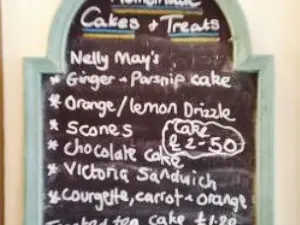 Homemade
Cakes + Treats
Nelly May's
* Ginger + Parsnip cake
* Orange/lemon Drizzle
* Scones
Cake
£2-50
* Chocolate cake
* Victoria Sandwich
* Courgette, carrot + orange
Toasted tea cake £1.20